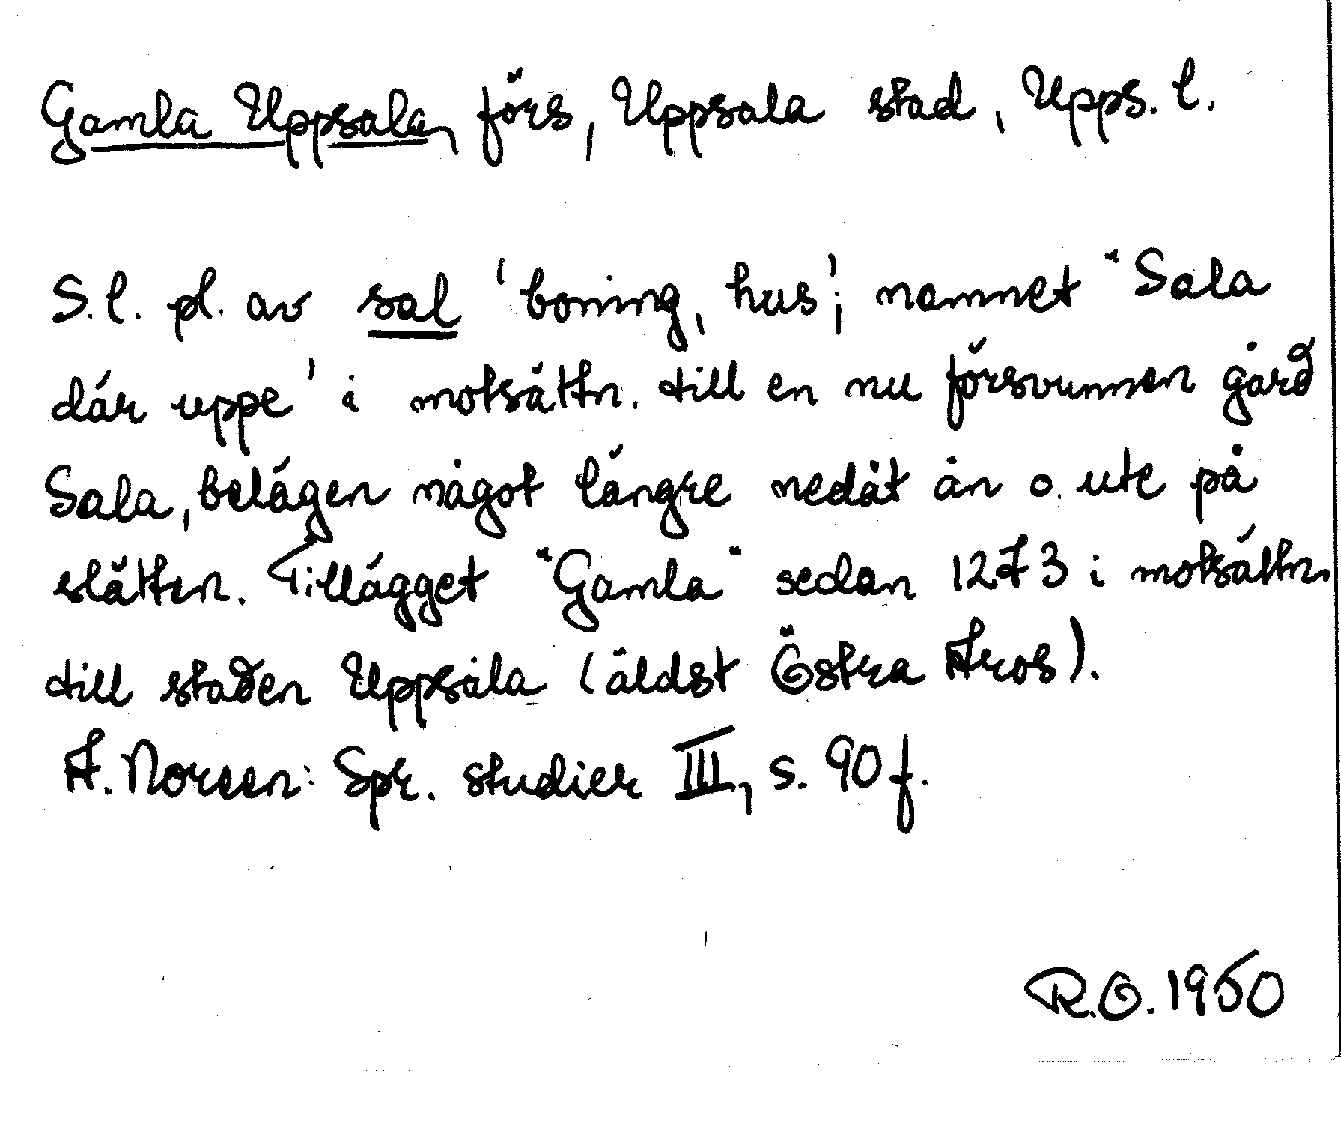 Gamla Uppsala, förs, Uppsala stad, Upps. l.
S.l. pl. av sal 'boning, hus'; namnet "Sala
där uppe' i motsättn. till en nu försvunnen gård
Sala, belägen något längre nedåt ån o. ute på
slätten. Tillägget "Gamla" sedan 1273 i motsättn.
till staden Uppsala (äldst Östra Aros).
A. Noreen: Spr. studier III, s. 90 f.
R.O. 1950